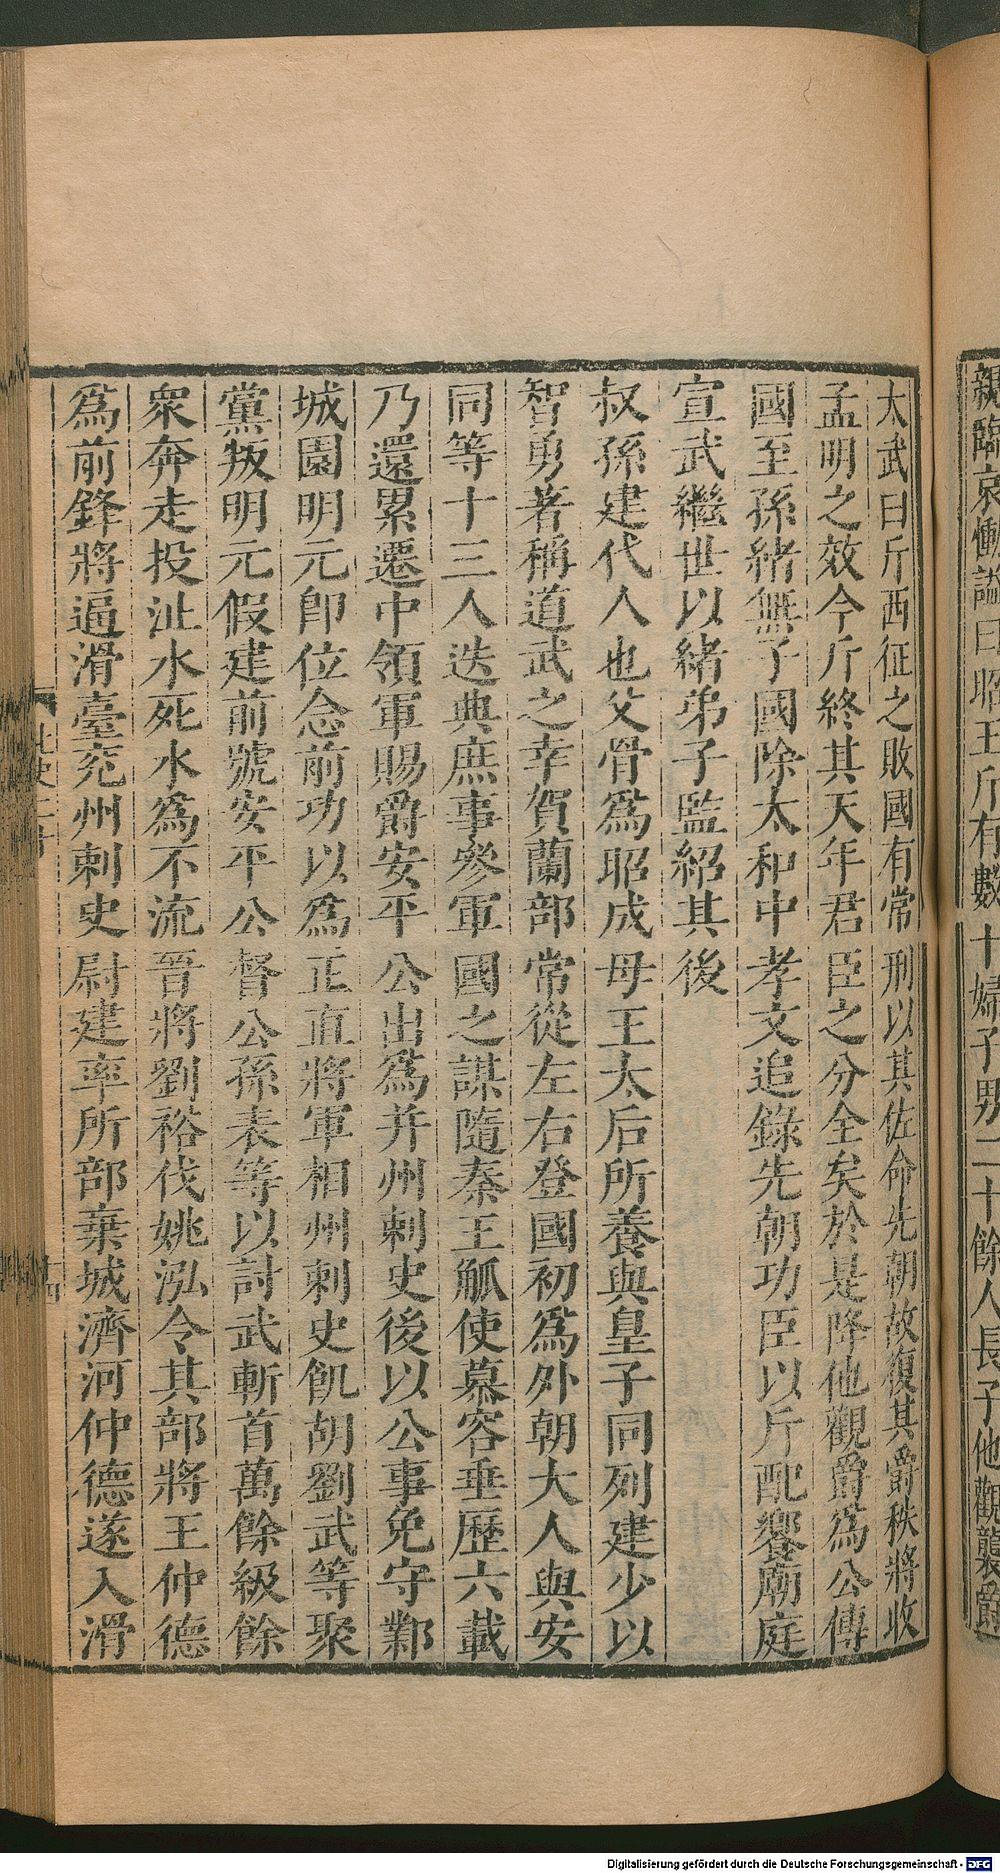 親臨哀慟諡曰昭王斤有數十婦子男二十餘人長子他觀襲爵
太武曰斤西征之敗國有常刑以其佐命先朝故復其爵秩將收
孟明之效今斤終其天年君臣之分全矣於是降他觀爵爲公傳
國至孫緒無子國除太和中孝文追錄先朝功臣以斤配饗廟庭
宣武繼世以緒弟子監紹其後
叔孫建代人也父骨爲昭成母王太后所養與皇子同列建少以
智勇著稱道武之幸賀蘭部常從左右登國初爲外朝大人與安
同等十三人迭典庶事參軍國之謀隨秦王觚使慕容垂歷六載
乃還累遷中領軍賜爵安平公出爲并州刺史後以公事免守鄴
城園明元卽位念前功以爲正直將軍相州刺史飢胡劉武等聚
黨叛明元假建前號安平公督公孫表等以討武斬首萬餘級餘
衆奔走投沚水死水爲不流晉將劉裕伐姚泓令其部將王仲德
爲前鋒將逼滑臺兖州刺史尉建率所部棄城濟河仲德遂入滑
十四
Digitalisierung gefördert durch die Deutsche Forschungsgemeinschaft - DFG